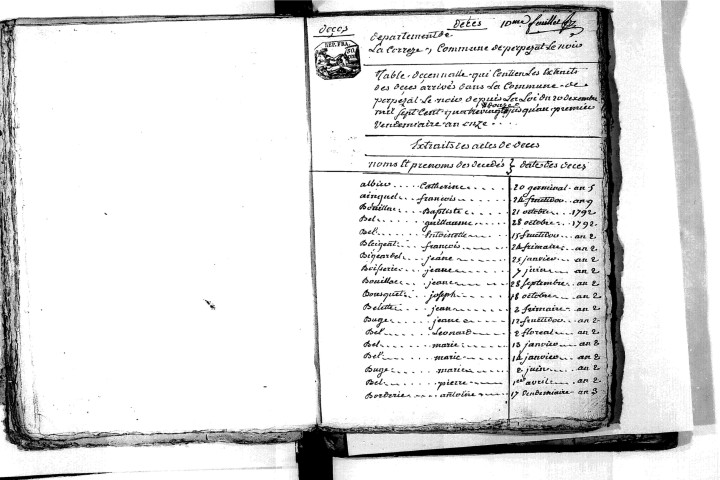 Décès
Décès 10me feuillet
REP. FRA.
département de
La Correze, Commune de perpezat Le noir
Table decennalle qui Contien Les Extraits
des deces arrivés dans La Commune de
perpezat Le noir depuis La Loi du 20 decembre
mil Sept Cent quatrevingt douze jusqu'au premier
Vendemiaire an onze
Extraits des actes de deces
noms et prenoms des decedés } date des deces
albier Catherine 20 germinal an 5
ainquel francois 24 fructidor an 9
Bouillac Baptiste 21 octobre 1792
Bel guillaume 28 octobre 1792
Bel antoinette 15 fructidor an 2
Bleigent francois 24 frimaire an 2
Bigeardel jeane 25 janvier an 2
Boisserie jeane 7 juin an 2
Bouillac jeane 28 septembre an 2
Bousquet joseph 18 octobre an 2
Belette jean 2 frimaire an 2
Buge jeane 12 fructidor an 2
Bel Leonard 2 floreal an 2
Bel marie 13 janvier an 2
Bel marie 14 janvier an 2
Buge marie 2 juin an 2
Bel pierre 1er avril an 2
Borderie antoine 17 Vendemiaire an 3